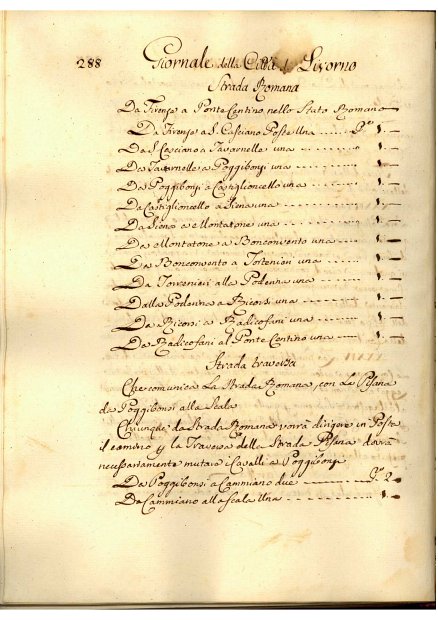 288 Giornale della Città di Livorno
Strada Romana
Da Firenze a Ponte Centino nello Stato Romano
Da Firenze a S. Casciano Poste Una P.e 1.
Da S. Casciano a Tavarnelle una 1.
Da Tavarnelle a Poggibonsi una 1.
Da Poggibonsi a Castiglioncello una 1.
Da Castiglioncello a Siena una 1.
Da Siena a Montarone una 1.
Da Montarone a Bonconvento una 1.
Da Bonconvento a una 1.
Da Torrenieri alla Poderina una 1.
Dalla Poderina a Ricorsi una 1.
Da Ricorsi a Radicofani una 1.
Da Radicofani al Ponte Centino una 1.
Strada traversa
Che comunica La Strada Romana, con La Pisana
da Poggibonsi alla Scala
Chiunque da Strada Romana vorrà dirigere in Posta
il camino p la Traversa della Strada Pisana dovrà
necessariamente mutare i Cavalli a Poggibonsi
Da Poggibonsi a Cammiano due P. 2
Da Cammiano alla Scala Una 1.